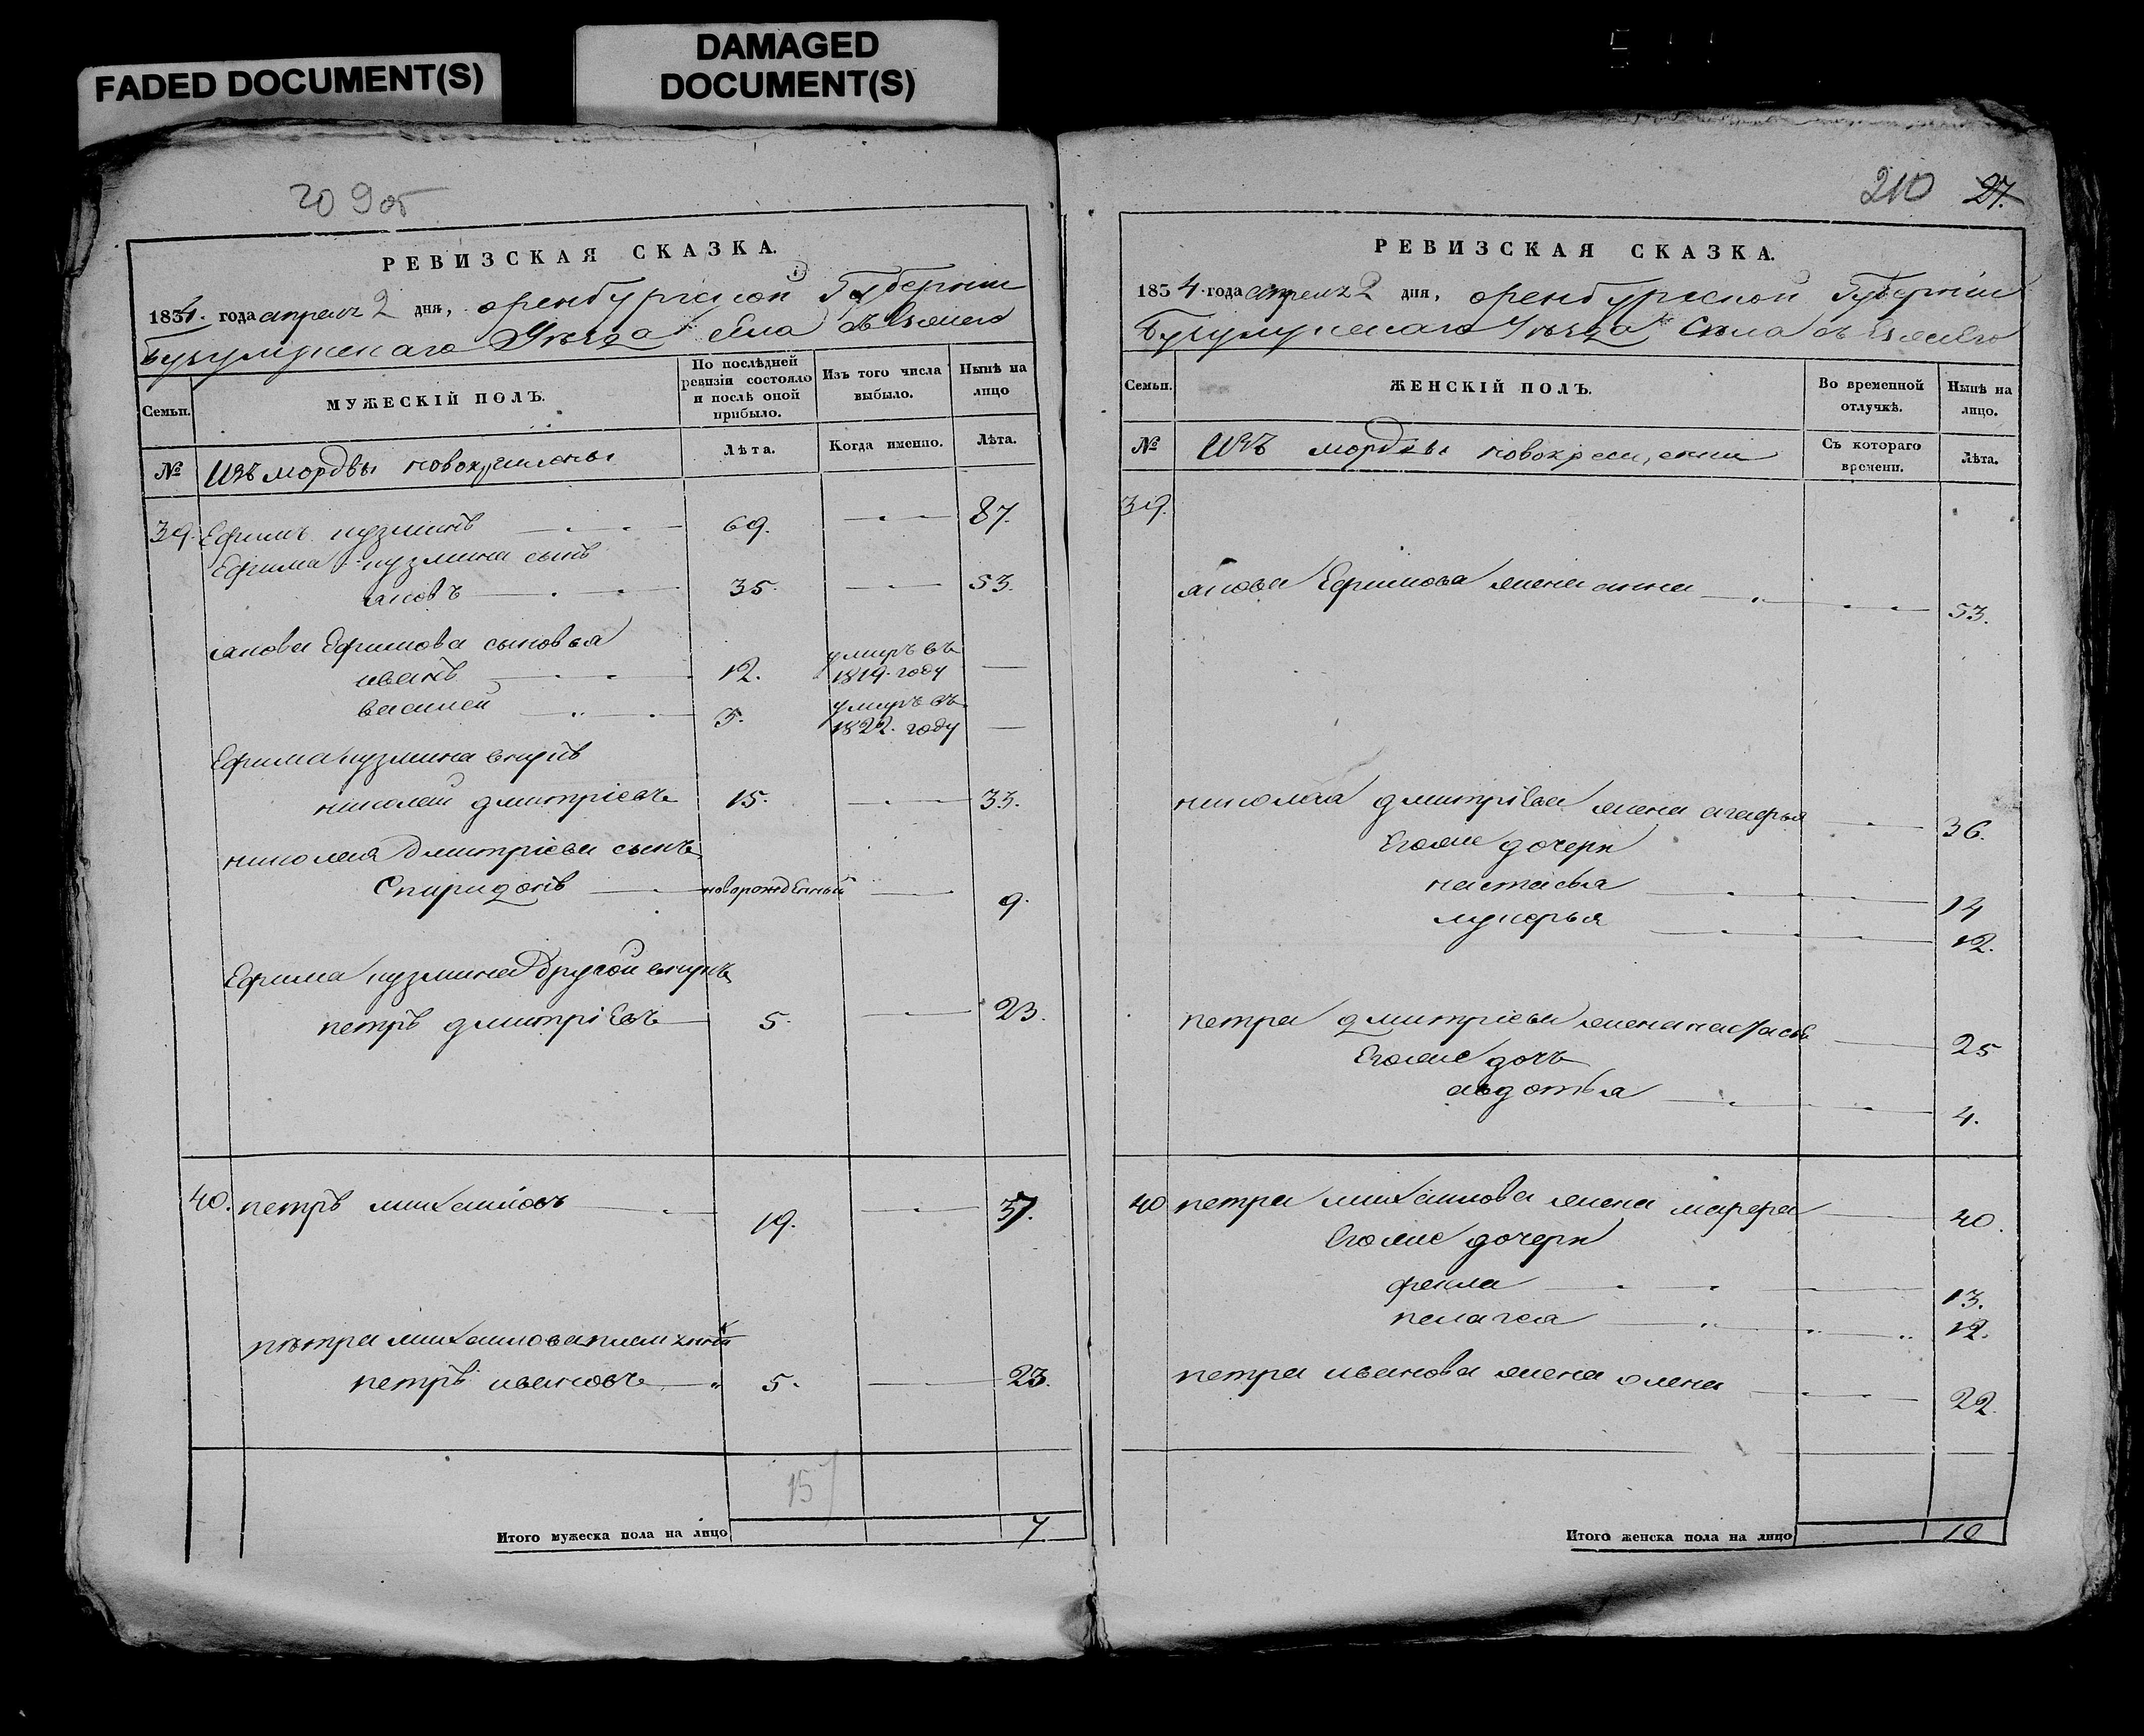 FADED DOCUMENT(S)
DAMAGED
DOCUMENT(S)
209 об
РЕВИЗСКАЯ СКАЗКА.
1834. года апреля 2 дня, оренбургской Губернии
Бугульминского Уезда села
Семьи.
МУЖЕСКІЙ ПОЛЪ.
По послѣдней
ревизіи состояло
и послѣ оной
прибыло.
Изъ того числа
выбыло.
Нынѣ на
лицо
№
Изъ мордвы новокрещены
Лѣта.
Когда именно.
Лѣта.
39. Ефимъ кузминъ 69. 87.
Ефима кузмина сынъ
яковъ 35. 53.
якова Ефимова сыновья
иванъ 12. умиръ въ
1819. году
василей 3. умиръ въ
1822. году
Ефима кузмина внукъ
николай дмитріевъ 15. 33.
николая Дмитріева сынъ
Спиридонъ новорожденный 9.
Ефима кузмина Другой внукъ
петръ дмитріевъ 5. 23.
40. петръ михайловъ 19. 37.
петра михайлова племянникъ
петръ ивановъ 5. 23.
15
Итого мужеска пола на лицо 7
210 27.
РЕВИЗСКАЯ СКАЗКА.
1834. года апреля 2 дня, оренбургской Губернии
Бугульминского Уезда Села
Семьи.
ЖЕНСКІЙ ПОЛЪ.
Во временной
отлучкѣ.
Нынѣ на
лицо.
№
Изъ мордвы новокрещени
Съ котораго
времени.
Лѣта.
39.
якова Ефимова жена анна 53.
николая дмитріева жена агафья 36.
Егоже дочери
настасья 14
лукерья 12.
петра дмитріева жена настасья 25
Егоже дочь
авдотья 4.
40 петра михайлова жена марфа 40.
Егоже дочери
фекла 13.
пелагея 12.
петра иванова жена олена 22.
Итого женска пола на лицо 10